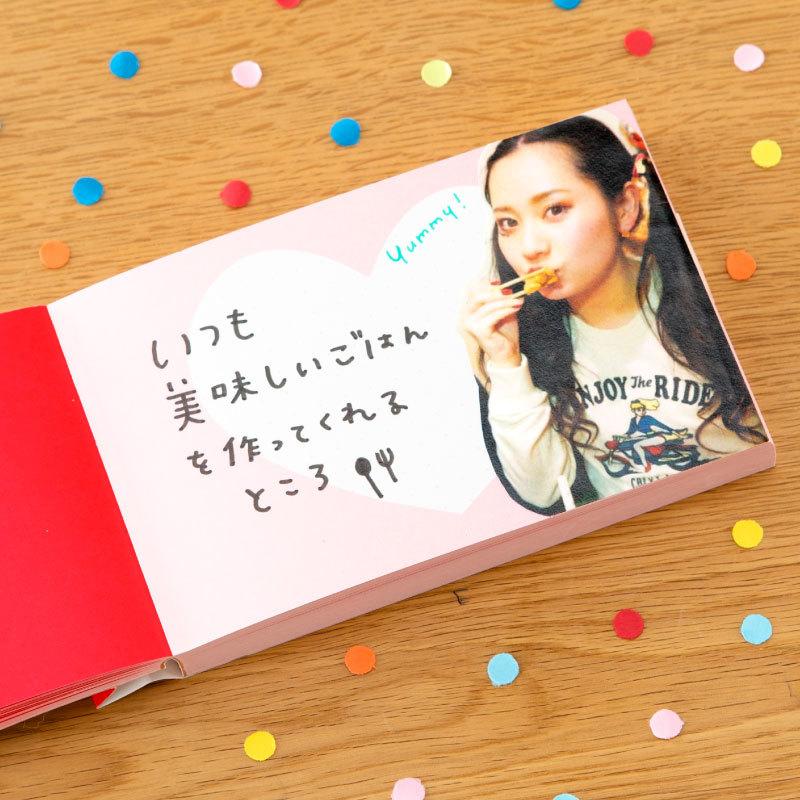 Yummy!
いつも
美味しいごはん
を作ってくれる
ところ
NJOY The RIDE